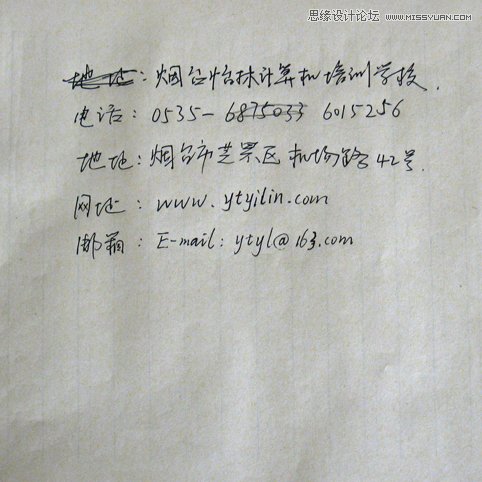 思缘设计论坛 WWW.MISSYUAN.COM
地址：烟台怡林计算机培训学校.
电话：0535-6875033 6015256
地址：烟台市芝罘区机场路42号.
网址：www.ytyilin.com
邮箱：E-mail：ytyl@163.com